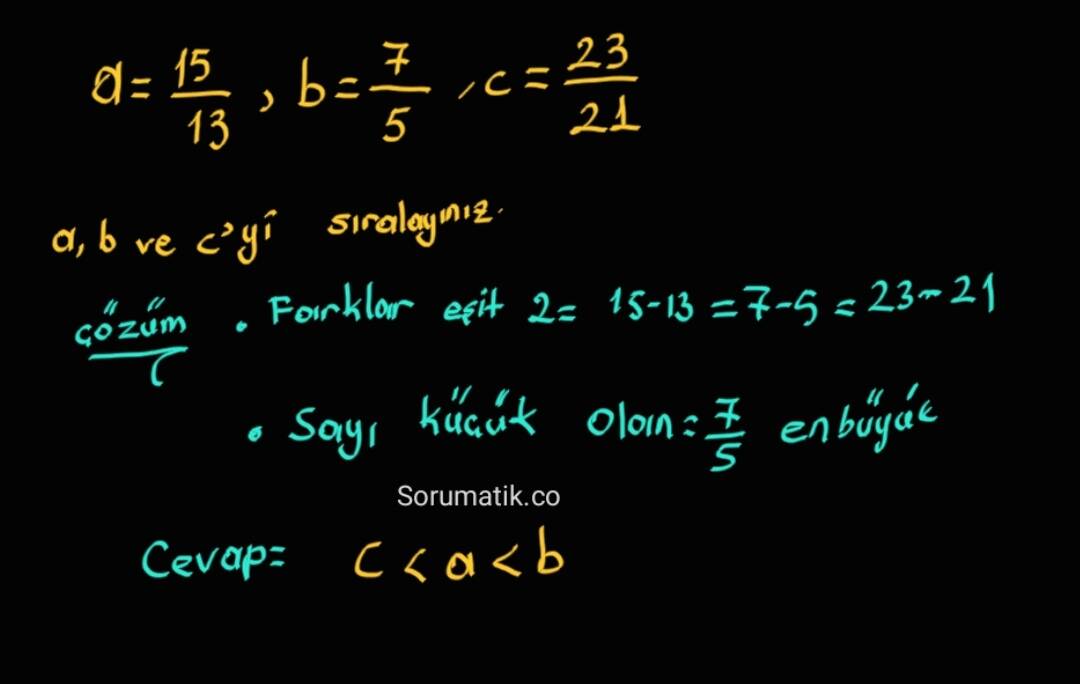 a = 15/13 , b = 7/5 , c = 23/21
a, b ve c'yi sıralayınız.
çözüm • Farklar eşit 2 = 15-13 = 7-5 = 23-21
• Sayı küçük olan = 7/5 en büyük
Sorumatik.co
Cevap = c < a < b